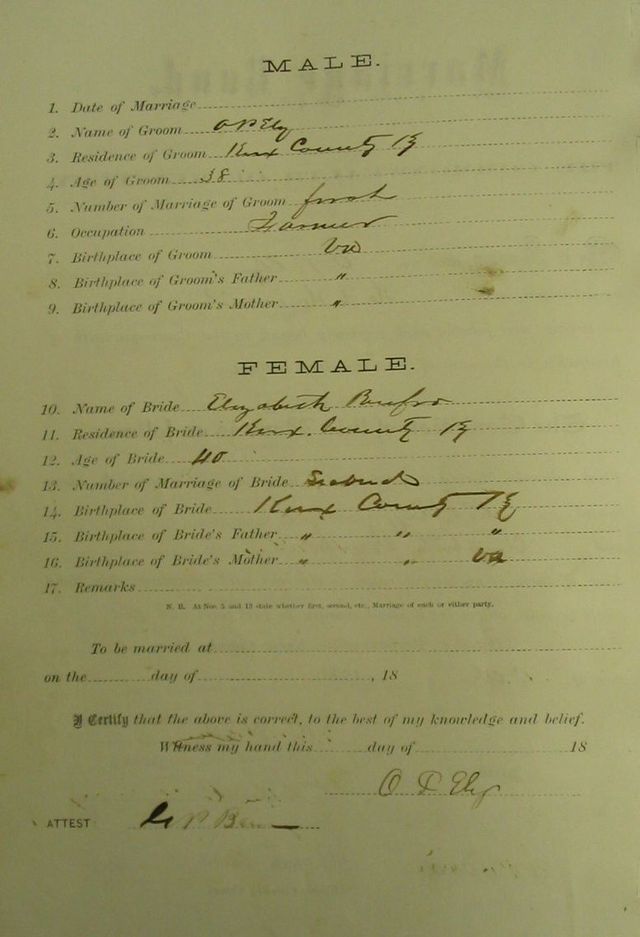 MALE.
1. Date of Marriage
2. Name of Groom O P Ely
3. Residence of Groom Knox County Ky
4. Age of Groom 38
5. Number of Marriage of Groom first
6. Occupation Farmer
7. Birthplace of Groom Va
8. Birthplace of Groom's Father "
9. Birthplace of Groom's Mother "
FEMALE.
10. Name of Bride Elizabeth Renfro
11. Residence of Bride Knox County Ky
12. Age of Bride 40
13. Number of Marriage of Bride Second
14. Birthplace of Bride Knox County Ky
15. Birthplace of Bride's Father " " "
16. Birthplace of Bride's Mother " " Va
17. Remarks
N. B. At Nos. 5 and 13 state whether first, second, etc., Marriage of each or either party.
To be married at
on the day of , 18
I Certify that the above is correct, to the best of my knowledge and belief.
Witness my hand this day of 18
O P Ely
ATTEST